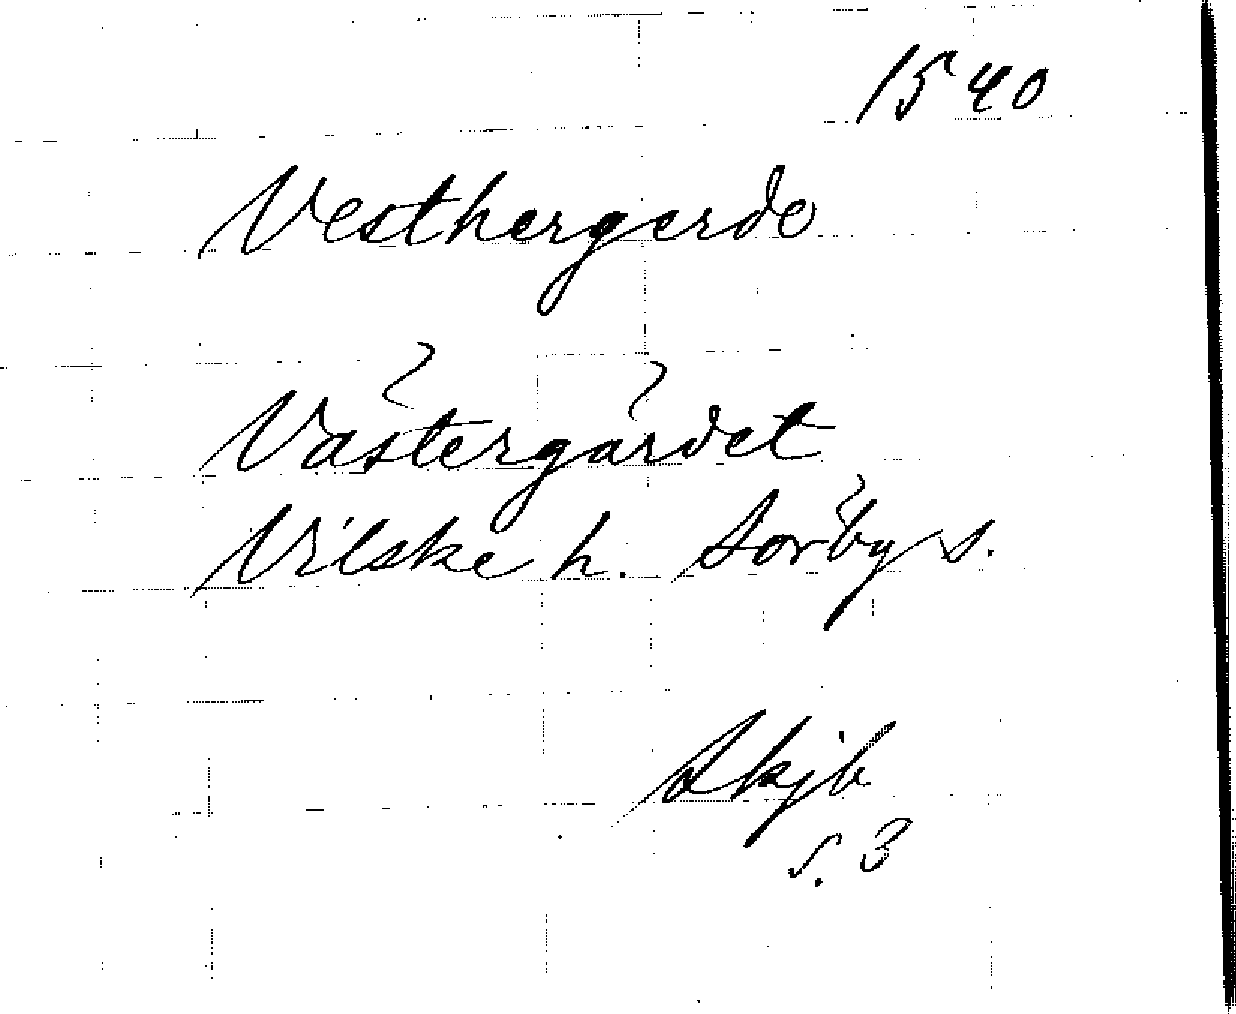 1540
Vesthergerde
Västergärdet
Vilske h. Sörby s.
Skjb
s. 3